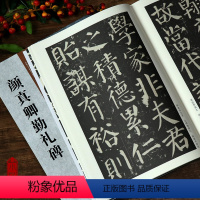 當代
學家非夫君
之積德累仁
貽謀有裕則
颜真卿勤礼碑
粉象优品